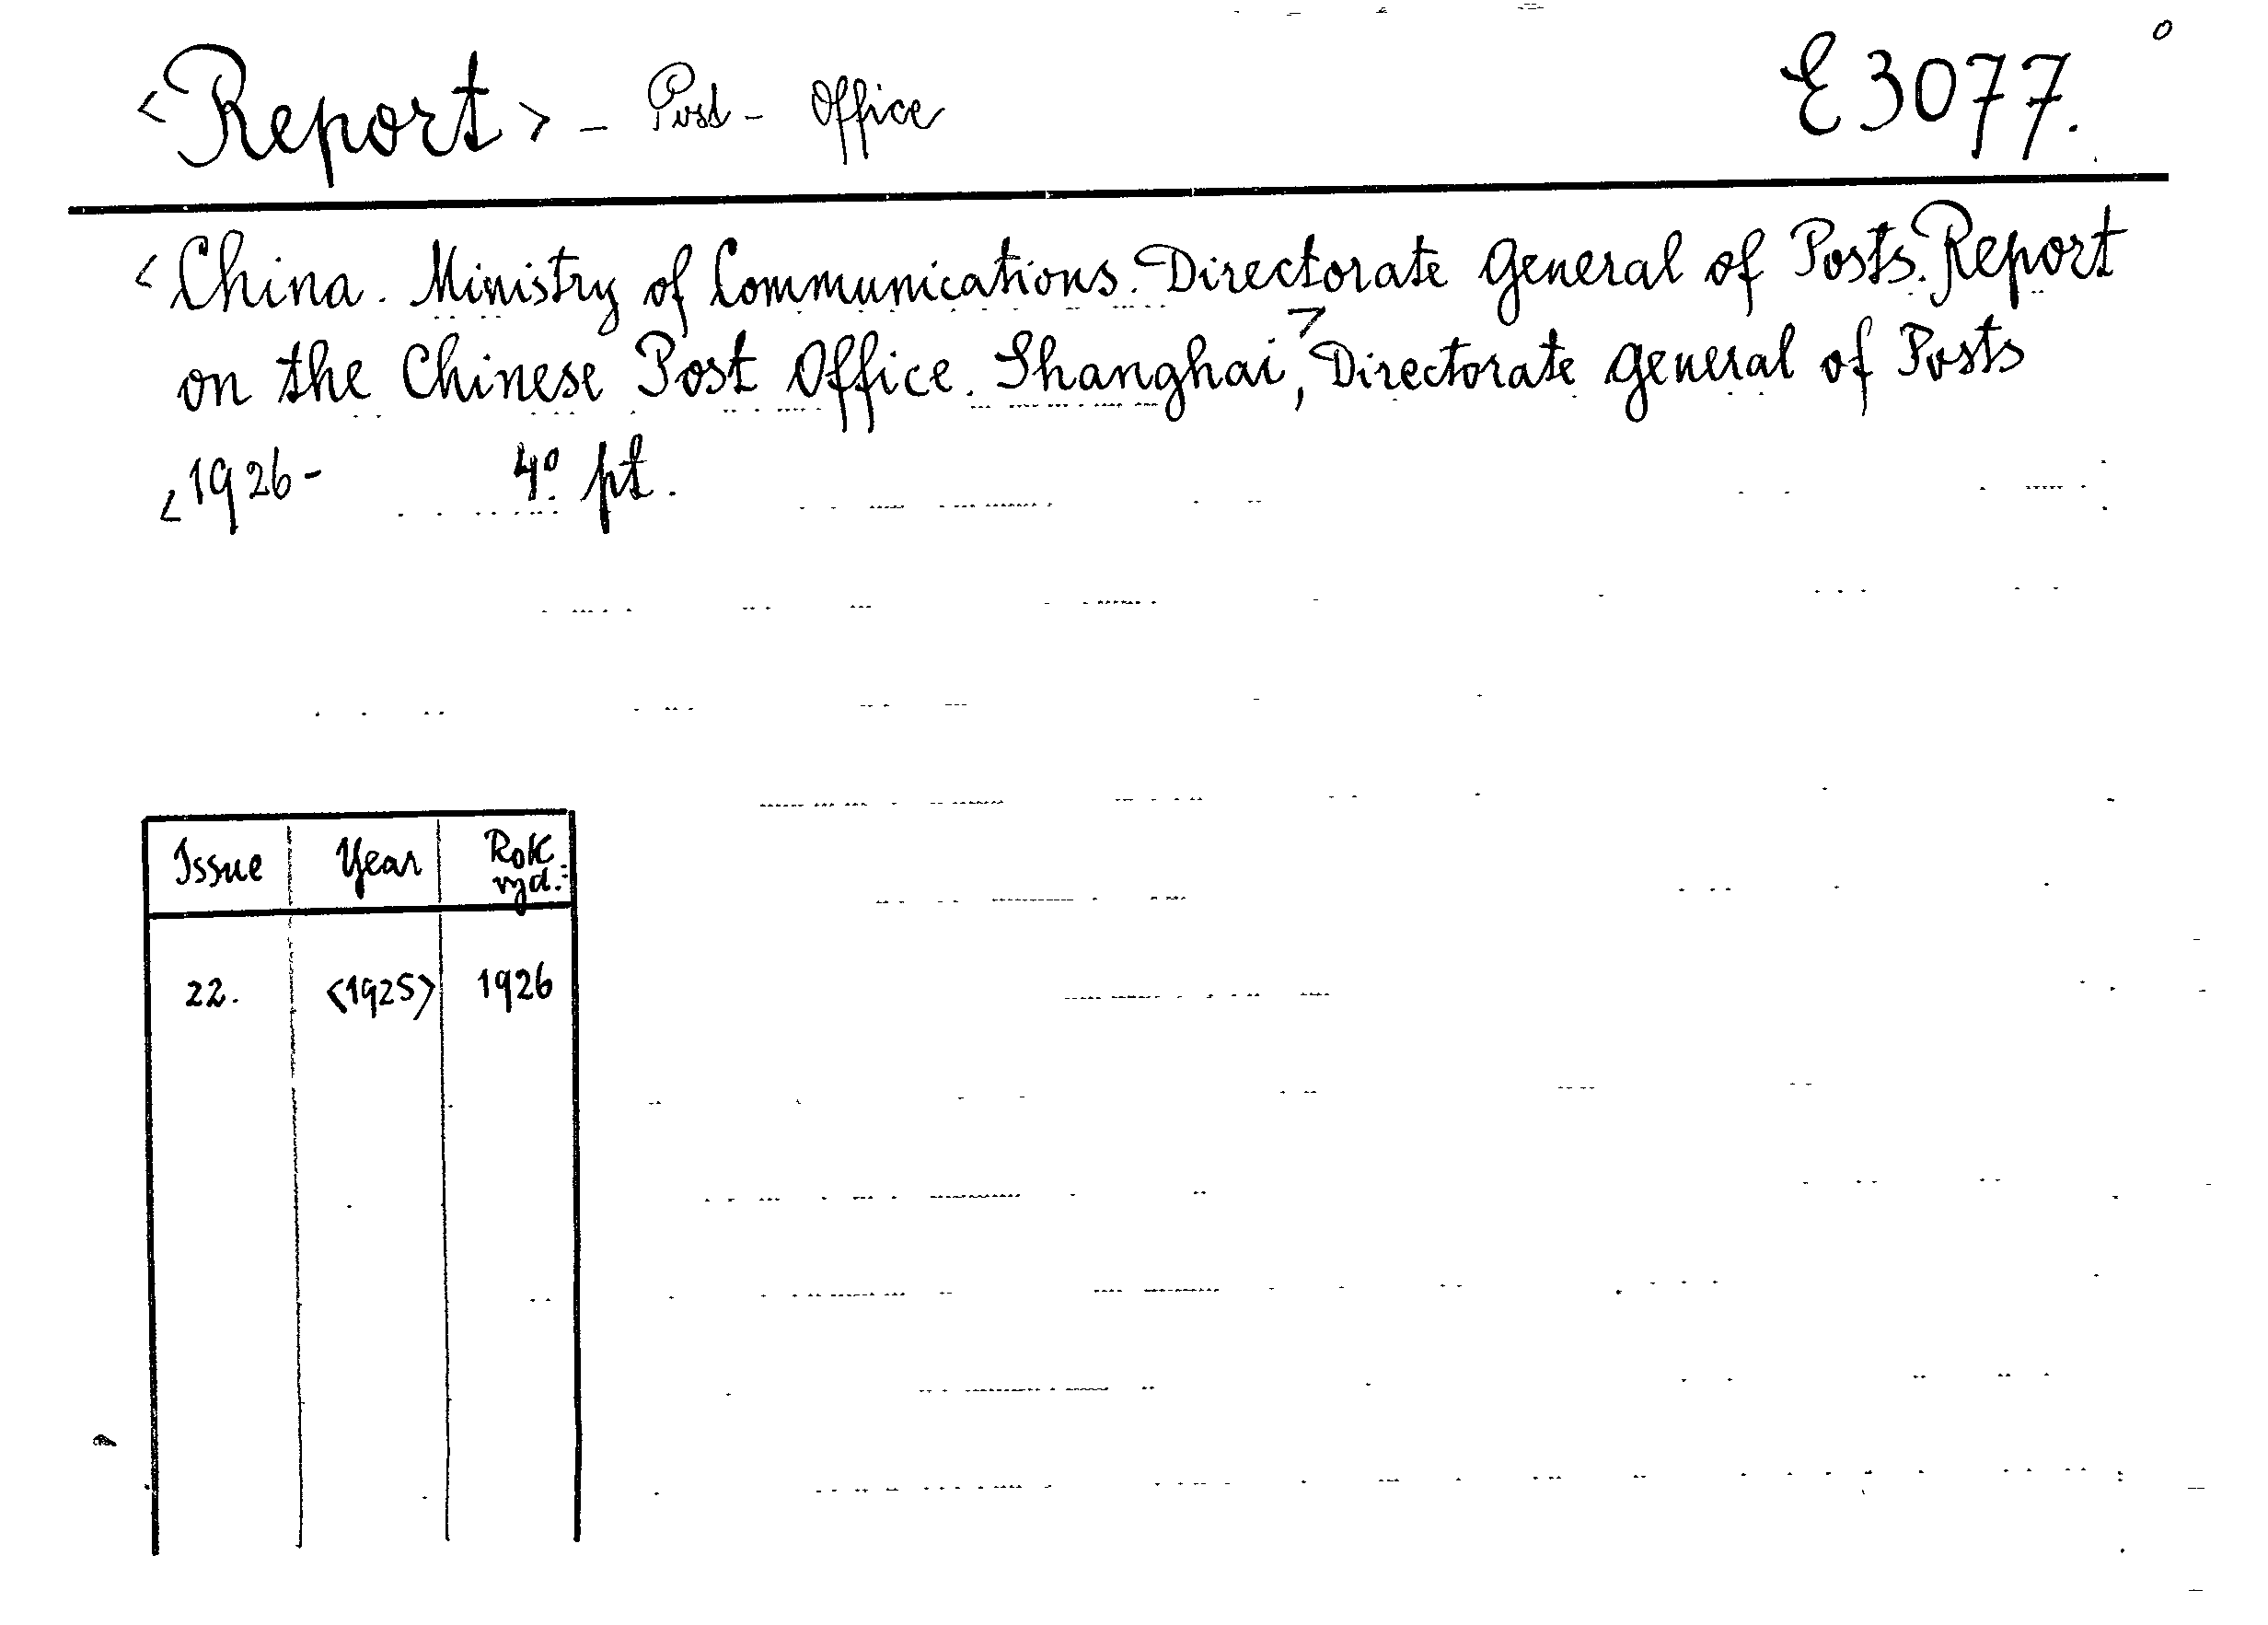 <Report> - Post - Office E 3077.
<China. Ministry of Communications. Directorate General of Posts. Report
on the Chinese Post Office. Shanghai,> Directorate general of Posts
<1926- 4º. pt.
Issue Year Rok vyd.:
22. <1925> 1926